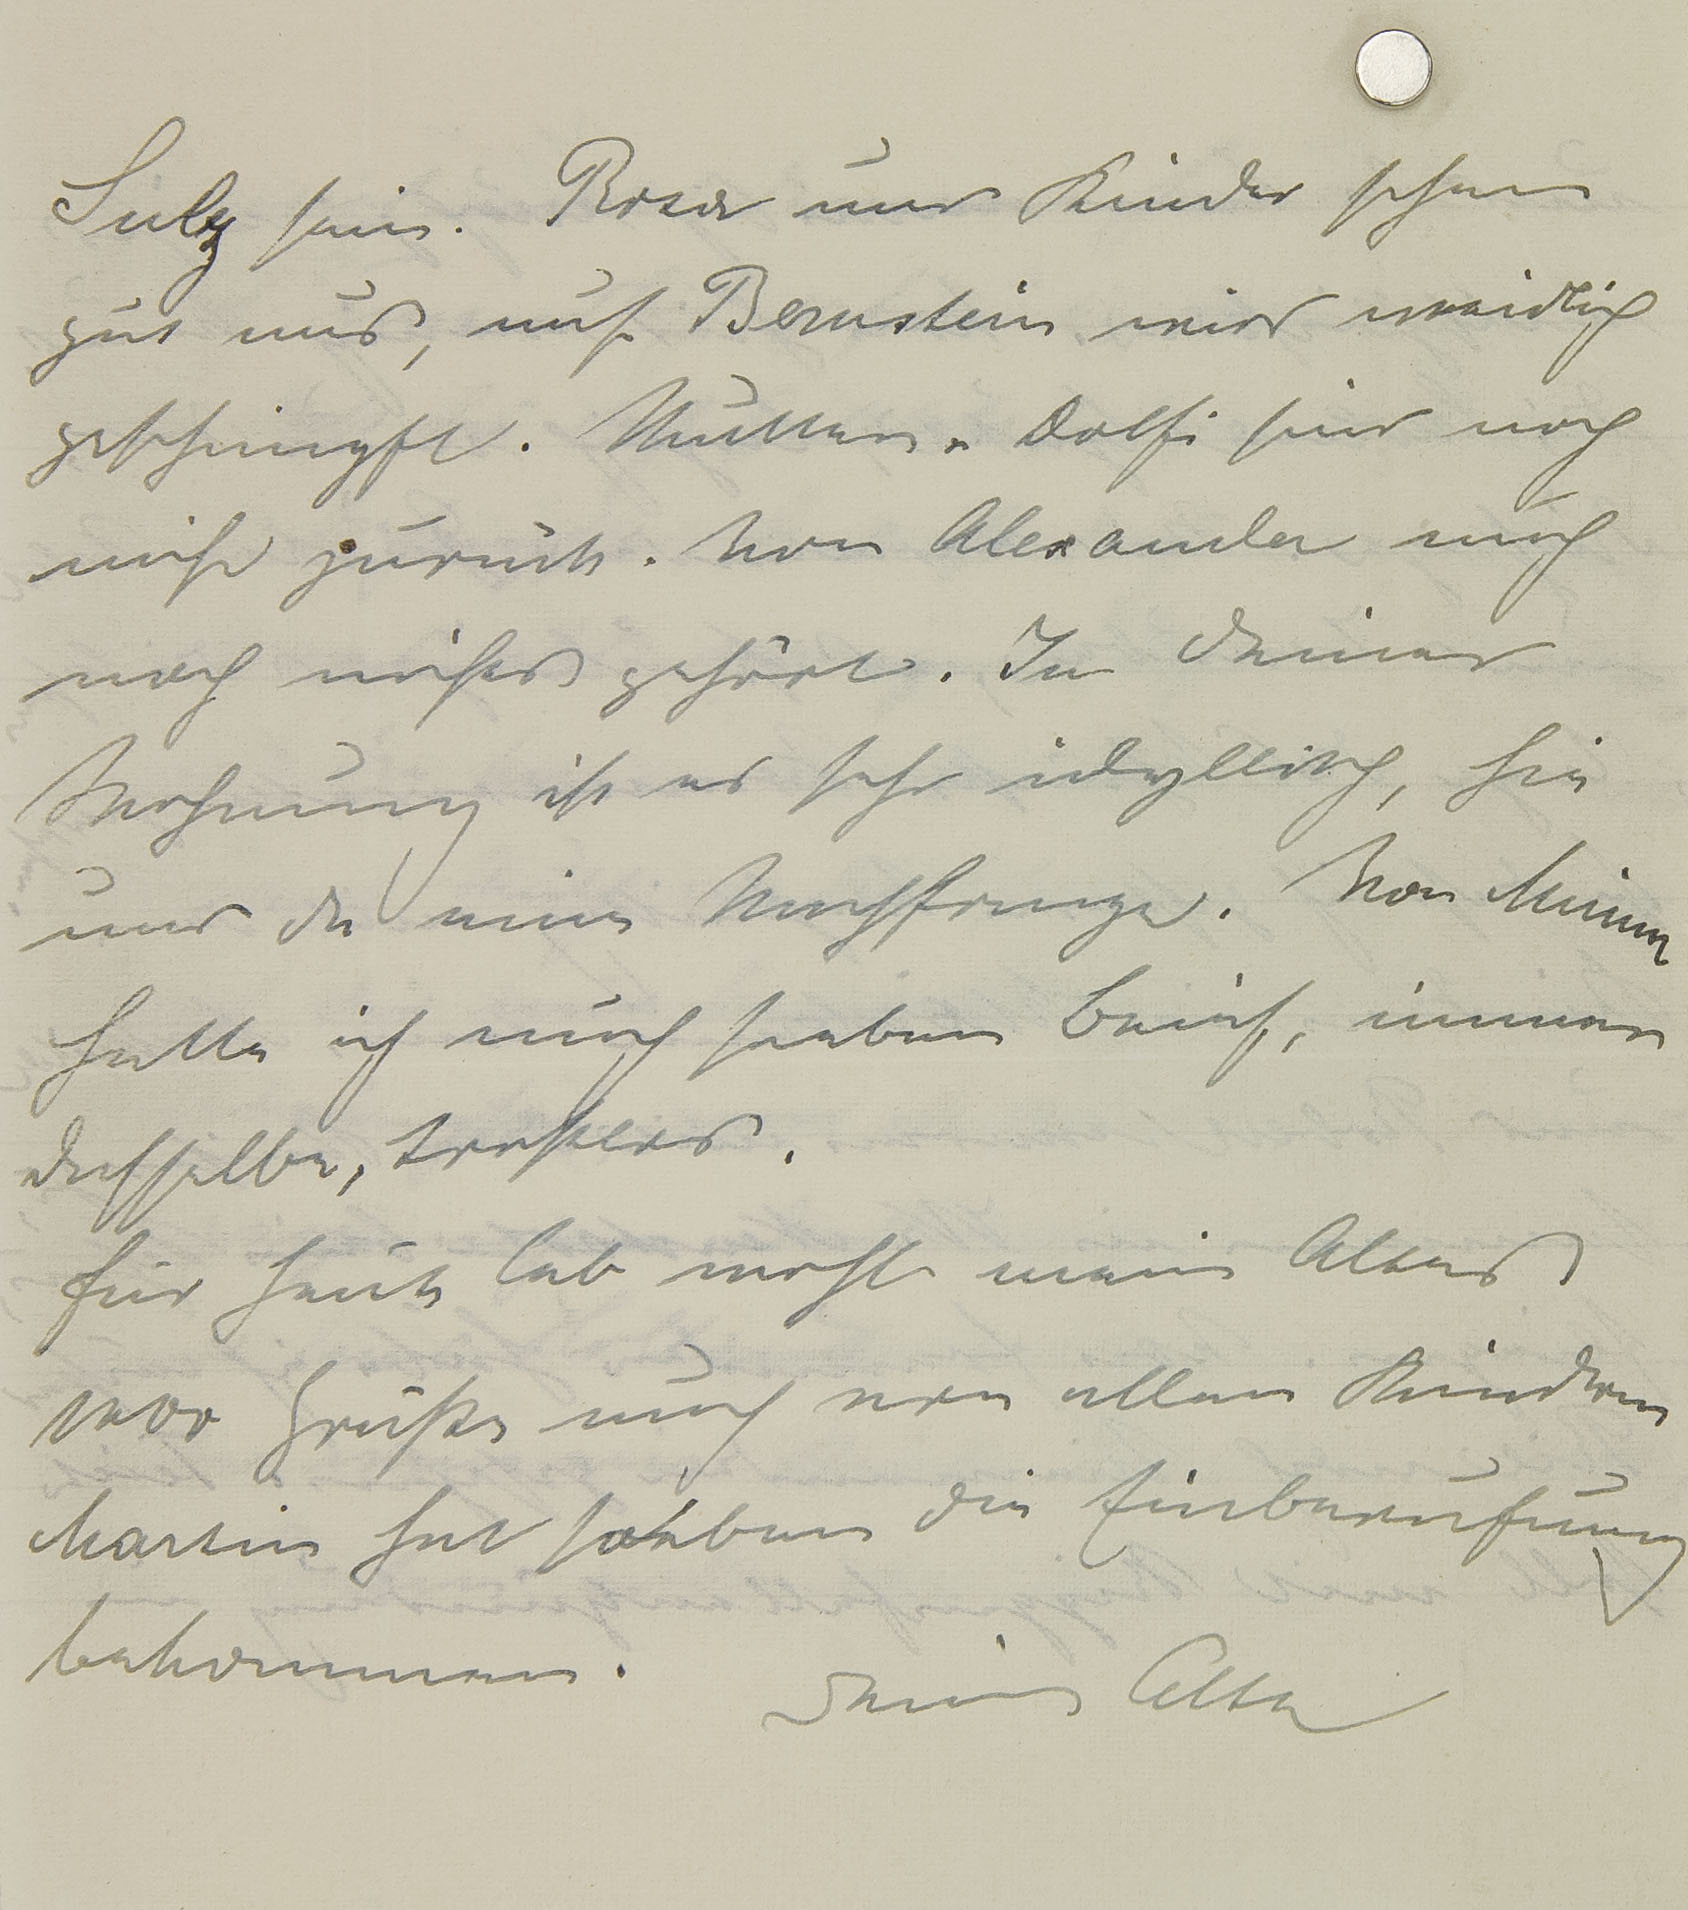 Sulz sein. Rosa und Kinder sehen
gut aus, auf Bernstein wird weidlich
geschimpft. Mutter u Dolfi sind noch
nicht zurück. Von Alexander auch
noch nichts gehört. In deiner
Wohnung ist es sehr idyllisch, hie
und da eine Nachfrage. Von Minna
hatte ich auch soeben Brief, immer
dasselbe, trostlos.
Für heute leb wohl mein Alter
1000 Grüße auch von allen Kindern
Martin hat soeben die Einberufung
bekommen.
Deine Alte